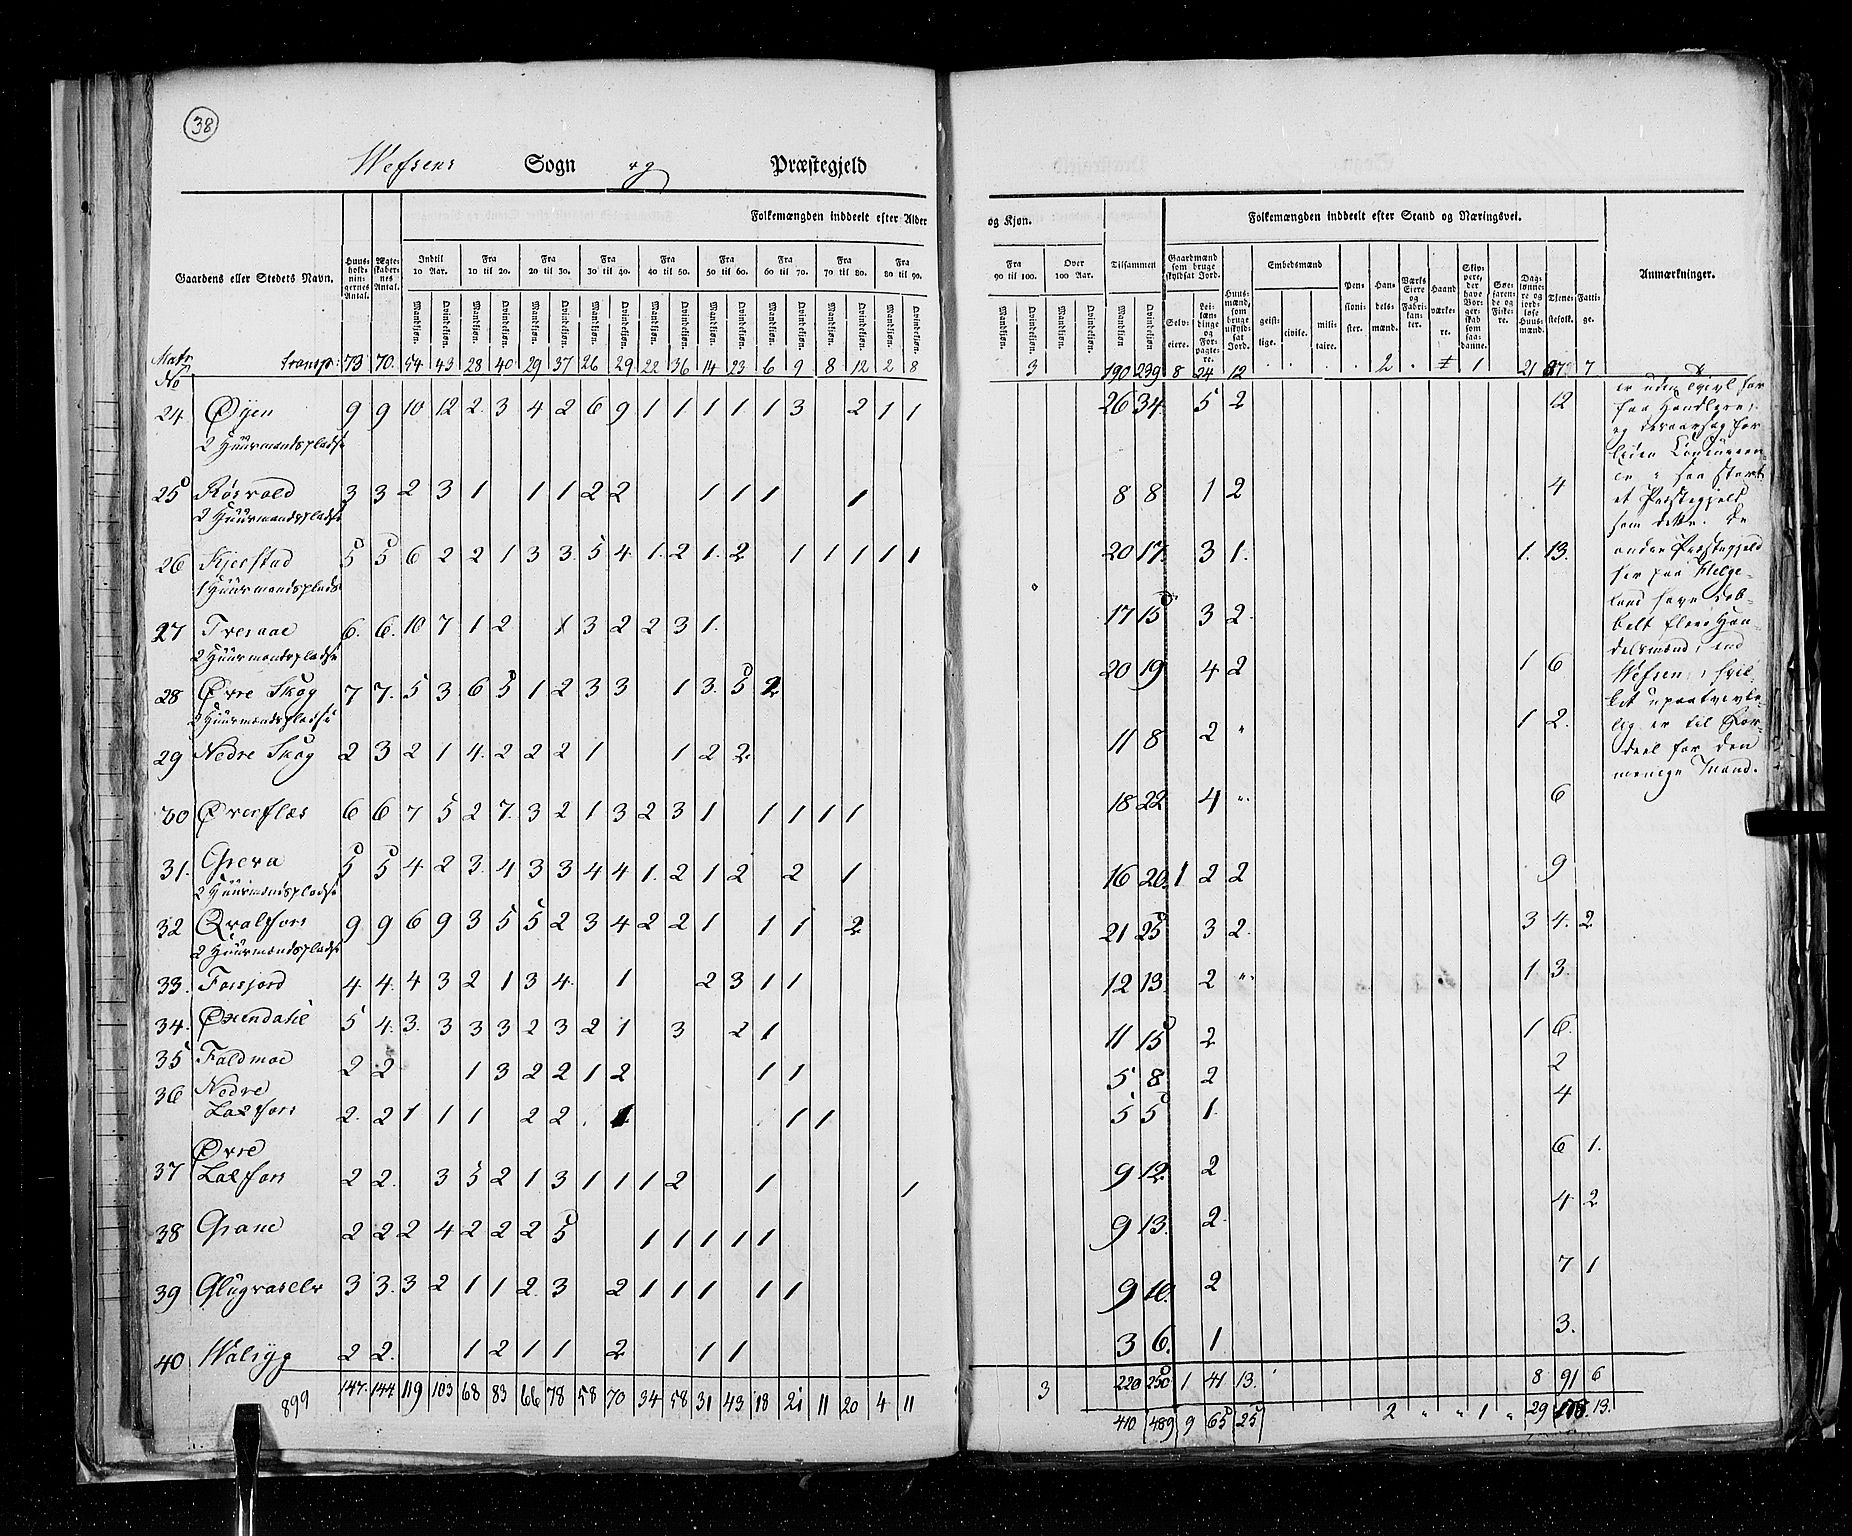 38
Wefsens Sogn og Præstegjeld
Folkemængden inddeelt efter Alder
og Kjøn.
Folkemængden inddeelt efter Stand og Næringsvei.
Gaardens eller Stedets Navn.
Huusholdningernes Antal.
Ægteskabernes Antal.
Indtil 10 Aar.
Fra 10 til 20.
Fra 20 til 30.
Fra 30 til 40.
Fra 40 til 50.
Fra 50 til 60.
Fra 60 til 70.
Fra 70 til 80.
Fra 80 til 90.
Fra 90 til 100.
Over 100 Aar.
Tilsammen
Mandkjøn. Qvindekjøn.
Gaardmænd som bruge skyldsat Jord.
Selveiere.
Leilændinge og Forpagtere.
Huusmænd, som bruge uskyldsat Jord.
Embedsmænd
geistlige. civile. militaire.
Pensionister.
Handelsmænd.
Værks Eiere og Fabrikanter.
Haandværkere.
Skippere, der have Borgerskab som saadanne.
Søefarende og Fiskere.
Daglønnere og jordløse Huusmænd.
Tjenestefolk.
Fattige.
Anmærkninger.
Matr No transp: 73 70 54 43 28 40 29 37 26 29 22 36 14 23 6 9 8 12 2 8 3 190 239 8 24 12 2 1 21 7
24 Øyen 9 9 10 12 2 3 4 2 6 9 1 1 1 1 1 3 2 1 1 26 34 5 2 12
2 Huusmandspladse
25 Røsvold 3 3 2 3 1 1 1 2 2 1 1 1 1 8 8 1 2 4
2 Huusmandspladse
26 Kjerstad 5 5 6 2 2 1 3 3 5 4 1 2 1 2 1 1 1 1 1 20 17 3 1 1 13
1 Huusmandsplads
27 Tresaae 6 6 10 7 1 2 1 3 2 2 3 1 17 15 3 2
2 Huusmandspladse
28 Øvre Skog 7 7 5 3 6 5 1 2 3 3 1 3 5 2 20 19 4 2 1 6
2 Huusmandspladse
29 Nedre Skog 2 3 2 1 4 2 2 2 1 1 2 2 11 8 2 " 1 2
30 Øverflæs 6 6 7 5 2 7 3 2 1 3 2 3 1 1 1 1 1 18 22 4 " 6
31 5 5 4 2 3 4 3 3 4 4 1 2 1 2 2 1 16 20 1 2 2 9
2 Huusmandspladse
32 Qvalfors 9 9 6 9 3 5 5 2 3 4 2 2 1 1 1 2 21 25 3 2 3 4 2
2 Huusmandspladse
33 Forsjord 4 4 4 3 2 1 3 4 1 2 3 1 1 12 13 2 " 1 3
34 Øxendalie 5 4 3 3 3 3 2 3 2 1 3 2 1 11 15 2 1 6
35 Faldmoe 2 2 1 3 2 2 1 2 1 1 5 8 2 2
36 Nedre
Laxfors 2 2 1 1 1 2 2 1 1 1 5 5 1 4
37 Øvre
Laxfors 2 2 3 5 2 1 3 1 1 1 2 1 1 9 12 2 6 1
38 Grane 2 2 2 4 2 2 2 5 1 1 1 1 1 9 13 2 4 2
39 Glugvaselv 3 3 3 2 1 1 2 3 2 1 1 1 1 1 9 10 2 7 1
40 2 2 1 2 1 1 2 1 1 3 6 1 3
899 147 144 119 103 68 83 66 78 58 70 34 58 31 43 18 21 11 20 4 11 3 220 250 1 41 13 8 91 6
410 489 9 65 25 2 " " 1 " 29 178 13
er uden tvivl for
faa Handlere,
og deraarsag for
liden Concurren-
ce i saa stort
et Præstegjeld
som dette. De
andre Præstegjeld
her paa Helge-
land have dob-
belt flere Han-
delsmænd, end
Wefsen, hvil-
ket upaatvivle-
lig er til For-
deel for den
menige Mand.